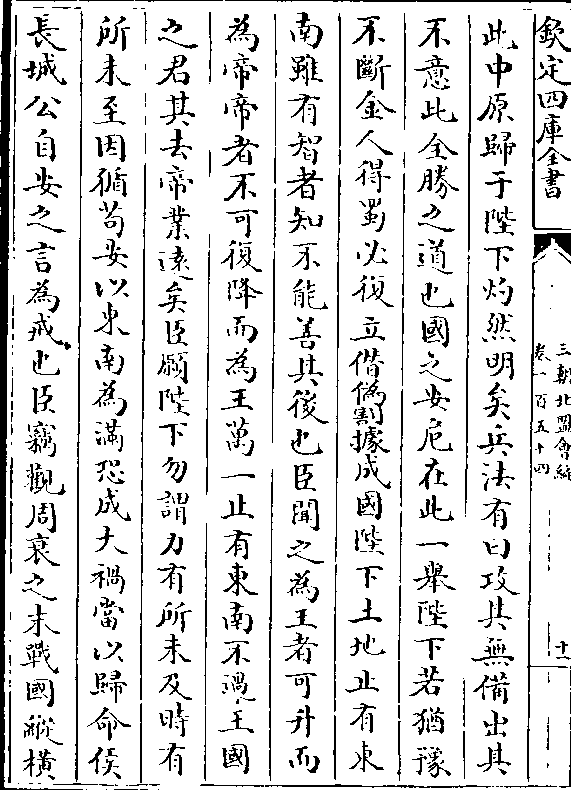 欽定四庫全書
三朝北盟會編
卷一百五十四
十一
此中原歸于陛下灼然明矣兵法有曰攻其無備出其
不意此全勝之道也國之安危在此一舉陛下若猶豫
不斷金人得蜀必復立僭偽割據成國陛下土地止有東
南雖有智者知不能善其後也臣聞之為王者可升而
為帝帝者不可復降而為王萬一止有東南不過王國
之君其去帝業遠矣臣願陛下勿謂力有所未及時有
所未至因循苟安以東南為滿恐成大禍當以歸命侯
長城公自安之言為戒也臣竊觀周衰之末戰國縱橫